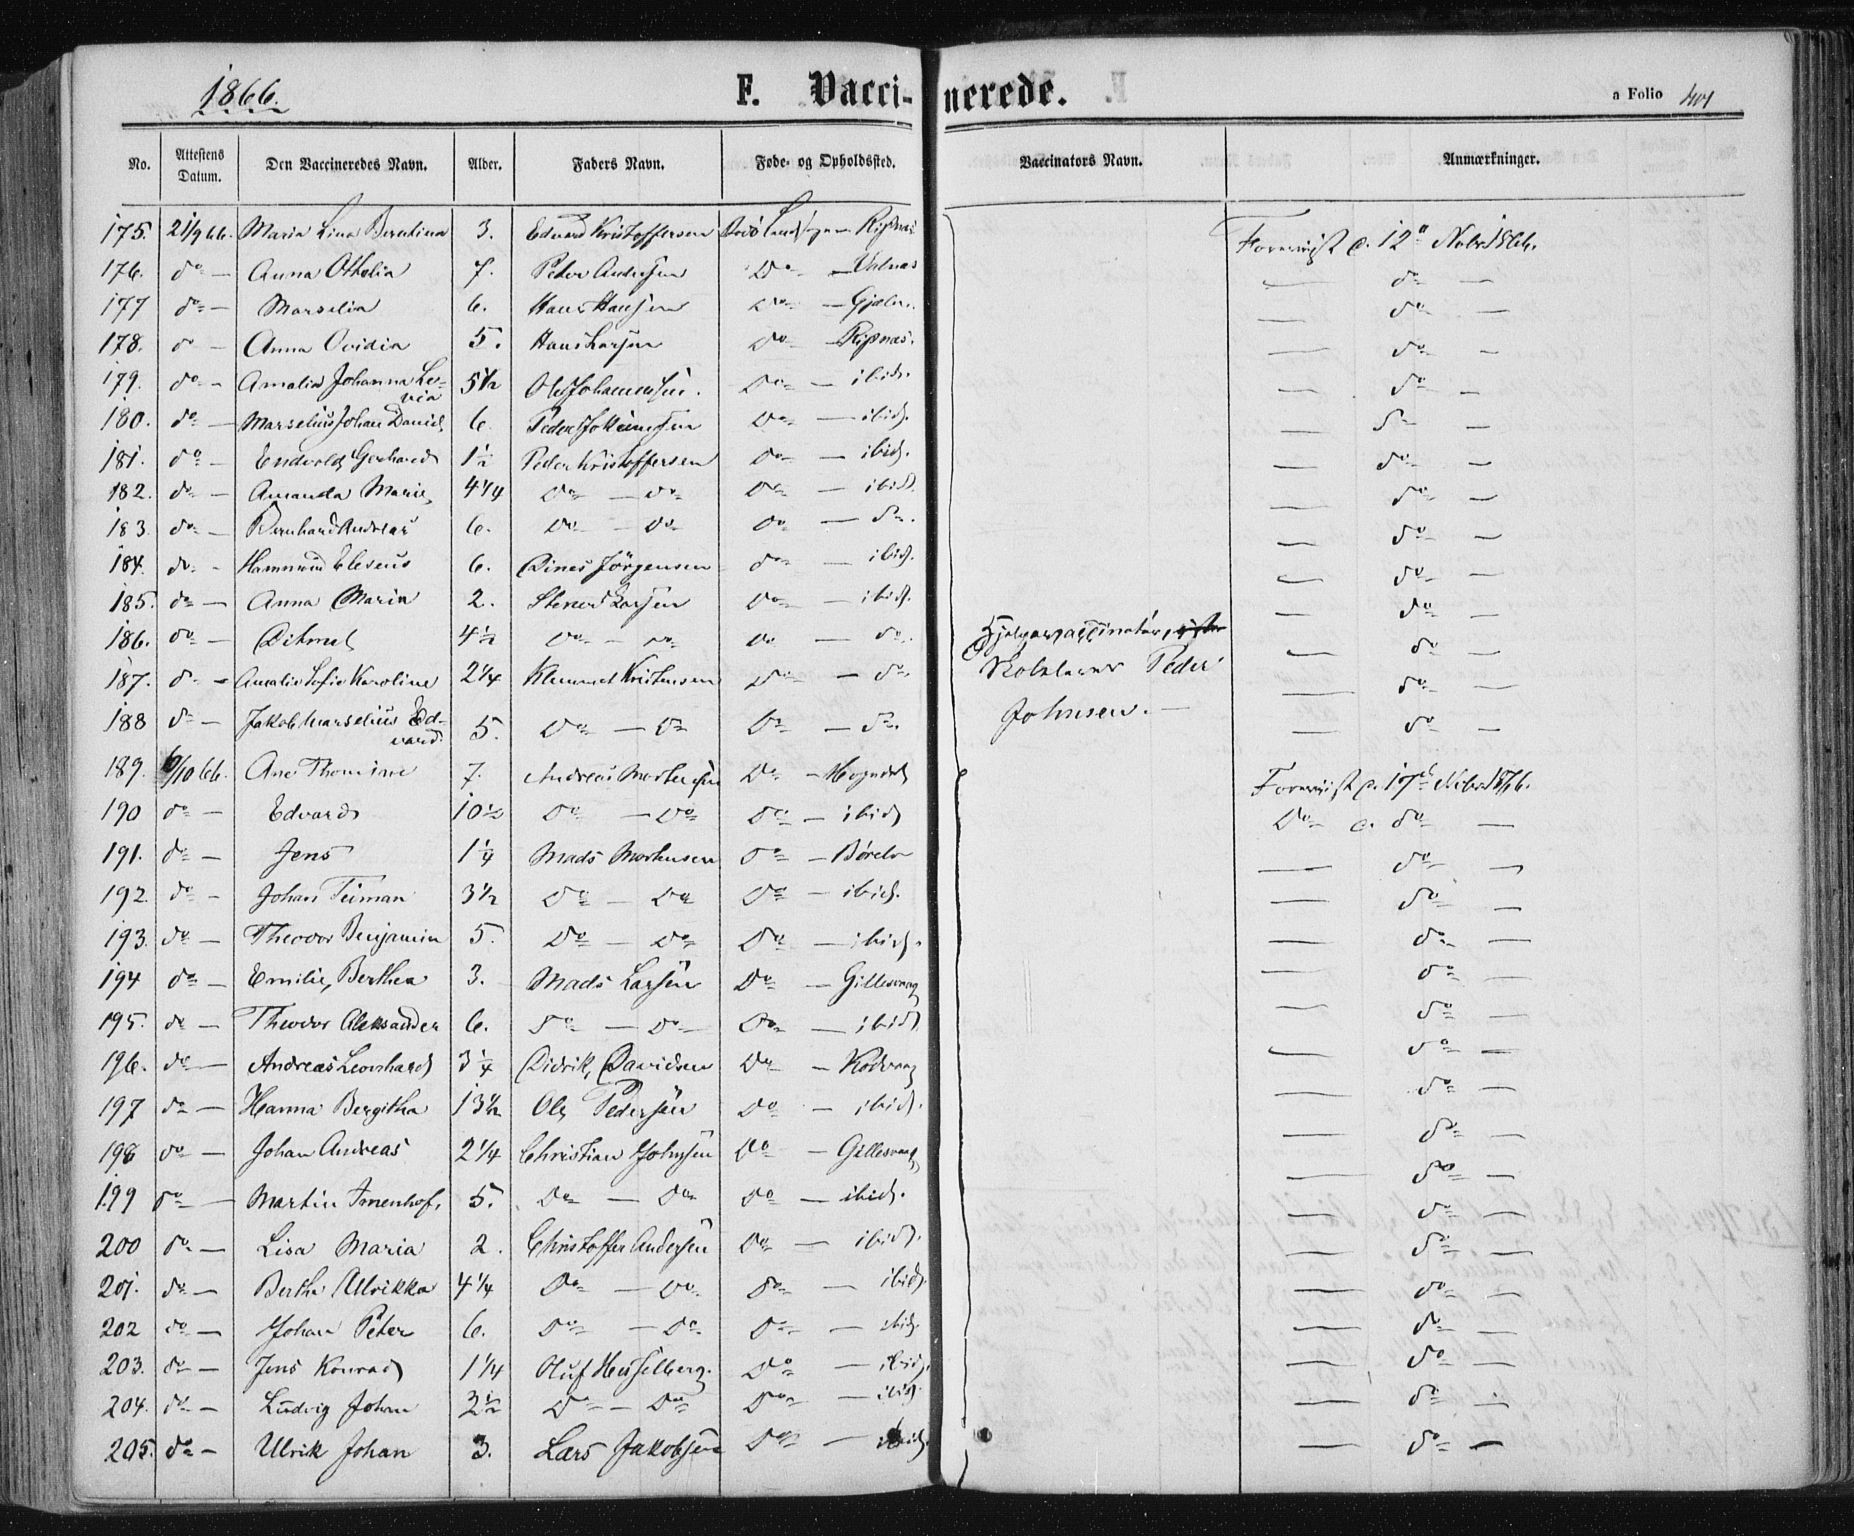 1866. F. Vacci-nerede. a Folio 401
No. Attestens Datum. Den Vaccineredes Navn. Alder. Faders Navn. Føde- og Opholdssted. Vaccinators Navn. Anmærkninger.
175. 21/9 66. Maria Lina Berntina 3. Edvard Kristoffersen Ripnæs Foreviist d. 12 Nobr 1866.
176. do — Anna Othelia 7. Peter Andersen Do — Valnæs — do —
177 do — Marselia 6. Hans Hansen Do — — do —
178. do — Anna Ovidia 5. Hans Larsen Do — Ripnæs. — do —
179. do — Amalia Johanna Le-
via 5 1/2 Ole Johannesen. Do — ibid. — do —
180. do — Marselius Johan Daniel 6. Peder Do — ibid. — do —
181. do — Endvold Gerhard 1 1/2 Peder Kristoffersen Do — ibid. — do —
182. do — Amanda Marie 4 1/4 Do — Do Do — ibid. — do —
183. do — Bernhard Andreas 6. Do — Do Do — do. — do —
184. do — Hammund Eleseus 6. Dines Jörgensen do — ibid. — do —
185. do — Anna Maria 2. Larsen Do — ibid. — do —
186. do — Ditmal 4 1/2 Do — Do Do — do. Hjelpevaccinatør, — do —
187. do — Amalie Sofie Karoline 2 1/4 Klemmet Kristensen Do — do Skolelærer Peder — do —
188 do — Jakob Marselius Ed-
vard. 5. Do — Do Do — do. Johnsen. — — do —
189. 6/10 66. Ane Thomine 7. Andreas Mortensen Do — Foreviist d. 17
190 do — Edvard 10 1/2 Do — Do Do — ibid Do d. do —
191. do — Jens 1 1/4 Mads Mortensen Do — Børelv — do —
192. do — Johan Teiman 3 1/2 Do — Do Do — ibid. — do —
193. do — Theodor Benjamin 5. Do — Do Do — ibid. — do —
194 do — Emilie, Berthea 3. Mads Larsen Do — Gillesvaag — do —
195. do — Theodor Aleksander 6. Do — Do Do — ibid. — do —
196. do — Andreas Leonhard 3 1/4 Didrik, Davidsen Do — Kodvaag — do —
197 do — Hanna Bergitha 13 1/2 Ole Pedersen Do — ibid. — do —
198 do — Johan Andreas 2 1/4 Christian Johnsen Do — Gillesvaag — do —
199 do — Martin Imenhof, 5. Do — Do Do — ibid. — do —
200 do — Lisa Maria 2. Christoffer Andersen Do — ibid. — do —
201. do — Bertha Ullrikka 4 1/4 Do — Do do — ibid. — do —
202 do — Johan Peter 6. Do — Do Do — ibid. — do —
203. do — Jens Konrad 1 1/4 Oluf Hesselberg. Do — ibid. — do —
204. do — Ludvig Johan 2 1/2 Do — Do Do — ibid. — do —
205. do — Ulrik Johan 3. Lars Jakobsen Do — ibid. — do —